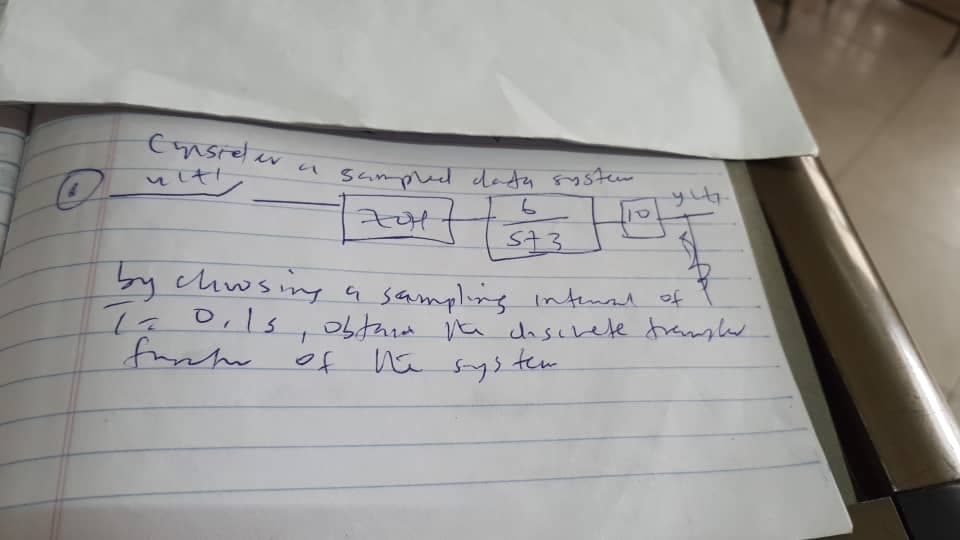 Consider a sampled data system
u(t)
ZOH
6
s+3
10
y(t)
by choosing a sampling interval of
T = 0.1s, obtain the discrete transfer
function of the system